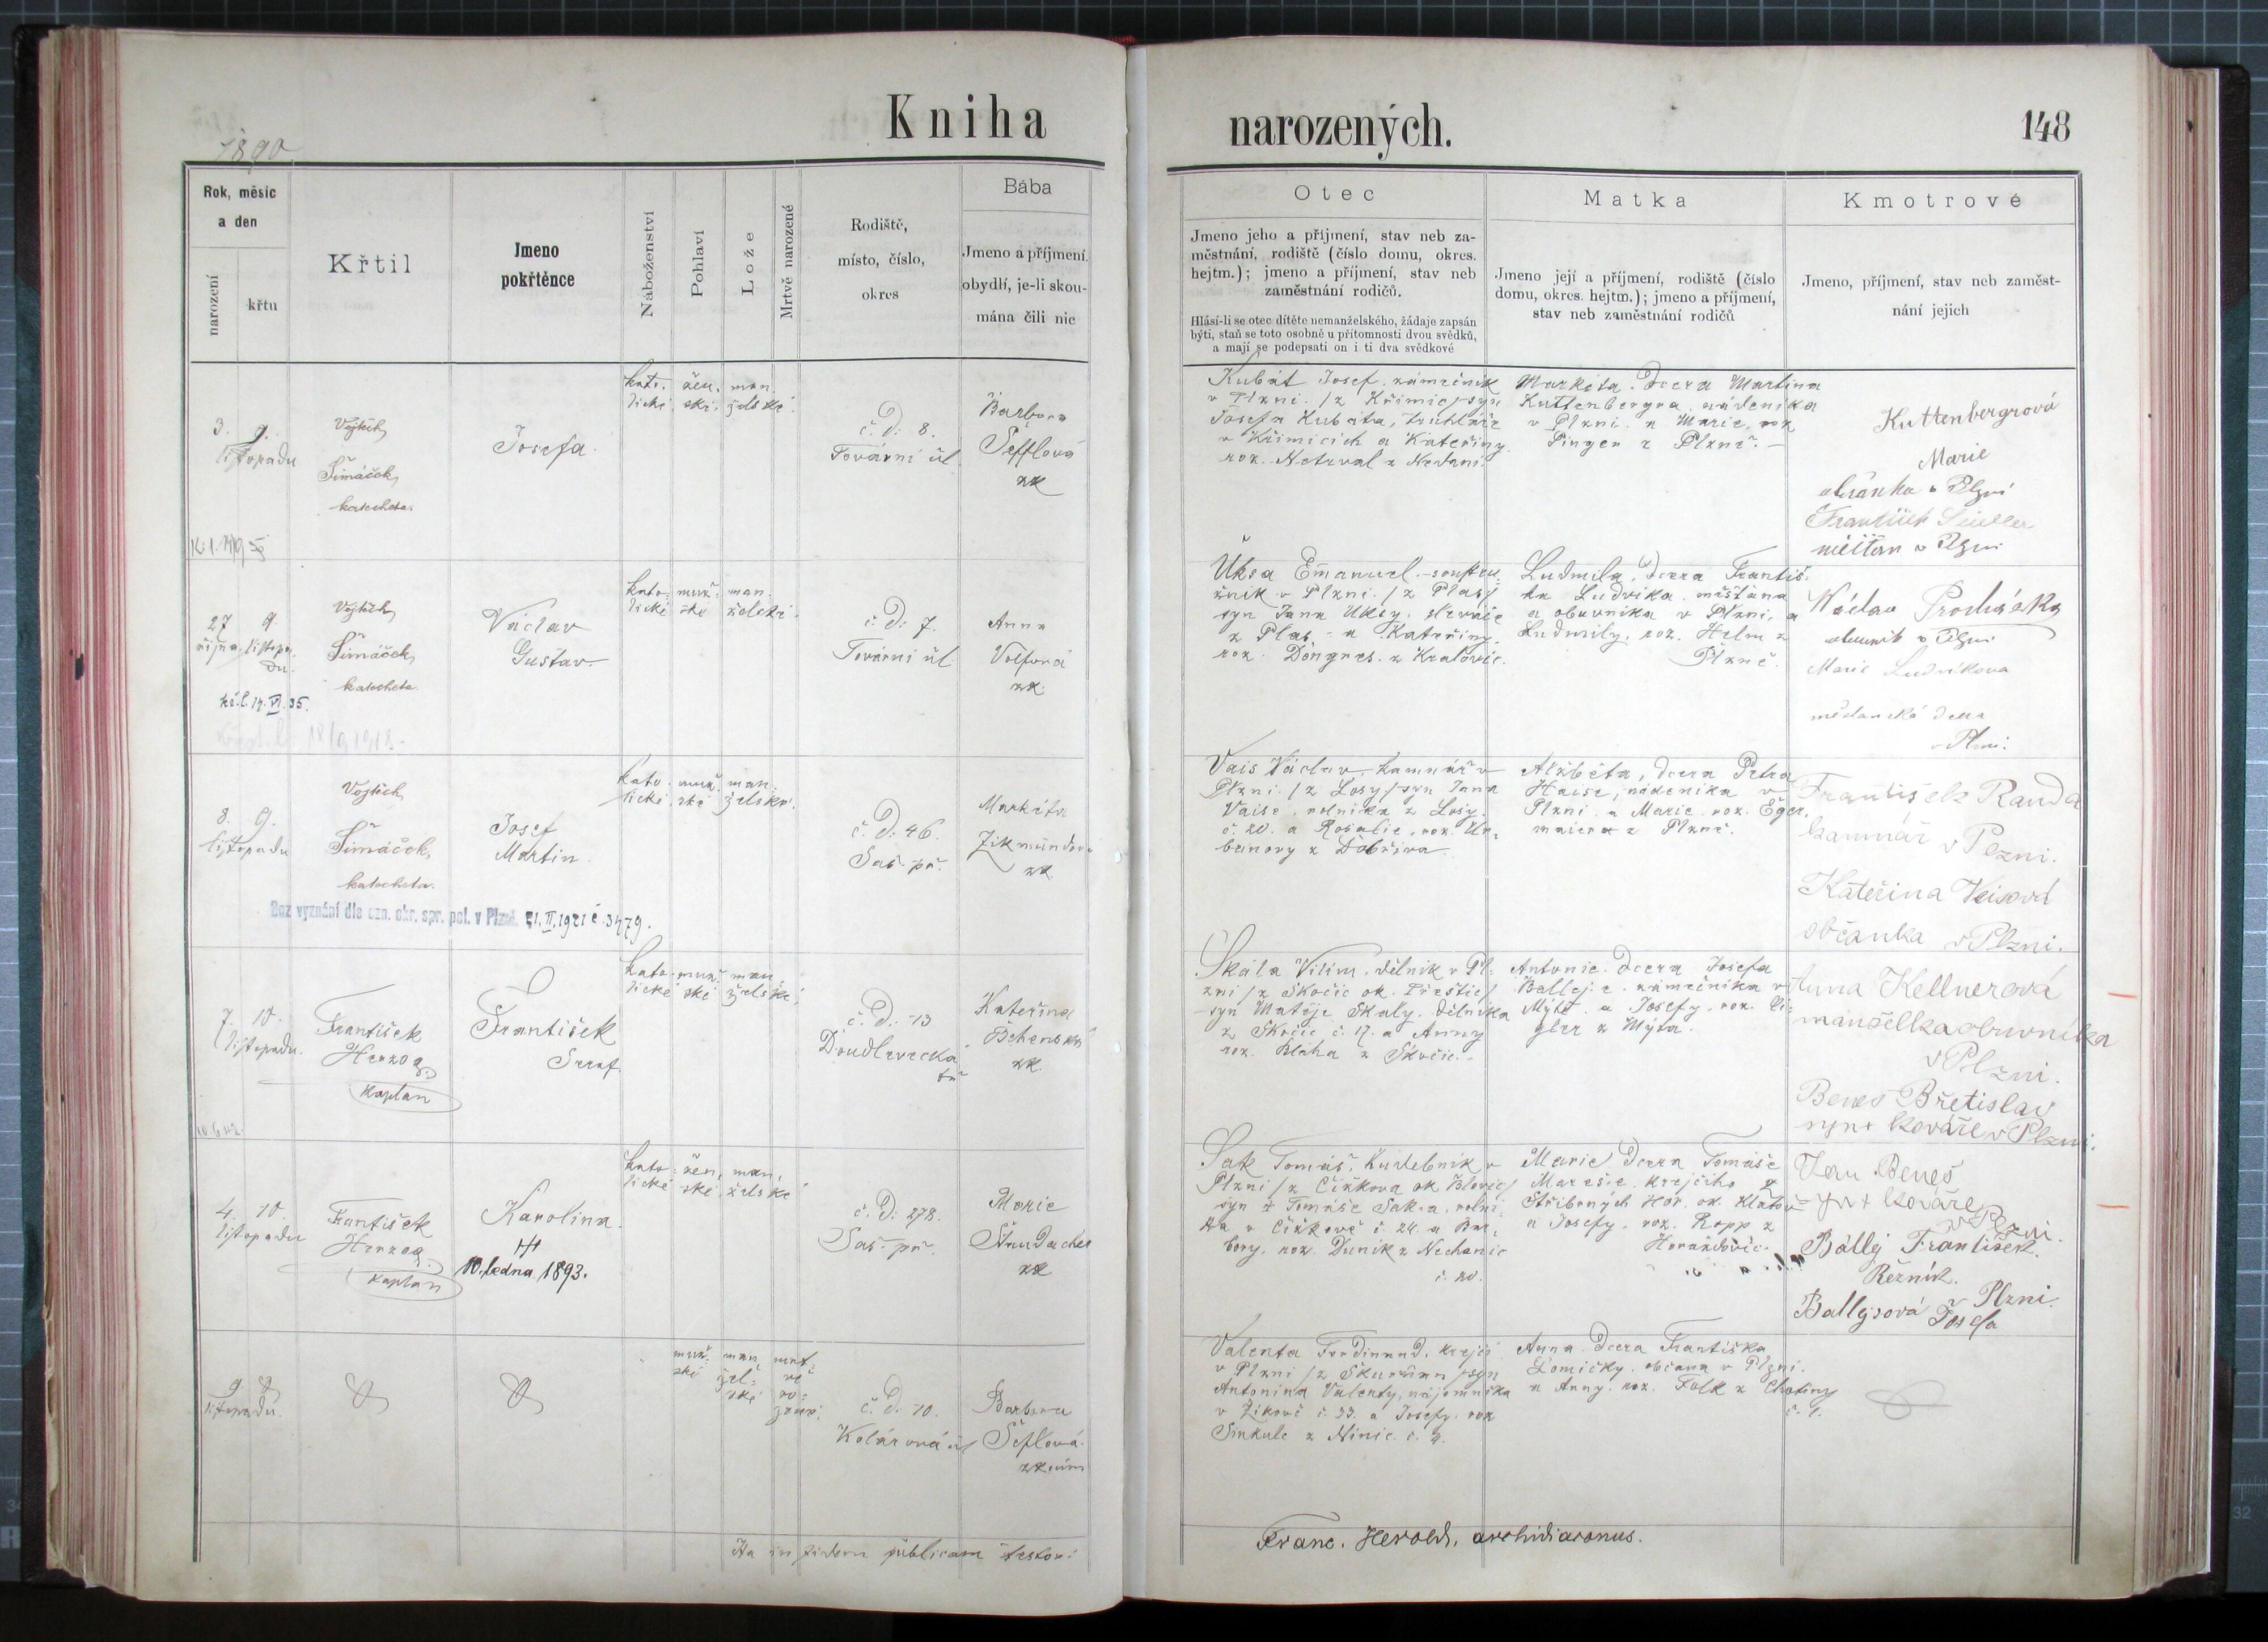 Kniha
narozených.
148
1890
Rok, měsíc
a den
narození
křtu
Křtil
Jmeno
pokřtěnce
Náboženství
Pohlaví
Lože
Mrtvě narozené
Rodiště,
místo, číslo,
okres
Bába
Jmeno a příjmení.
obydlí, je-li skou-
mána čili nic
Otec
Jmeno jeho a příjmení, stav neb za-
městnání, rodiště (číslo domu, okres.
hejtm.); jmeno a příjmení, stav neb
zaměstnání rodičů.
Hlásí-li se otec dítěte nemanželského, žádaje zapsán
býti, staň se toto osobně u přítomnosti dvou svědků,
a mají se podepsati on i ti dva svědkové
Matka
Jmeno její a příjmení, rodiště (číslo
domu, okres. hejtm.); jmeno a příjmení,
stav neb zaměstnání rodičů
Kmotrové
Jmeno, příjmení, stav neb zaměst-
nání jejich
3. 9.
listopadu
Vojtěch
Šimáček,
katecheta.
Josefa.
kato. žen. man.
lické. ské. želské.
č. d. 8.
Tovární ul.
Barbora
Šefflová
zk
Kubát Josef. zámečník
v Plzni. /z Křimic/ syn
Josefa Kubáta, truhláře
v Křimicích a Kateřiny.
roz. Netrval z
Markéta. dcera Martina
Kuttenbergra nádeníka
v Plzni a Marie, roz.
Pinger z Plzně. –
Kuttenbergrová
Marie
občanka v Plzni
František
měšťan v Plzni
27 9.
října. listopa.
du.
Vojtěch
Šimáček,
katecheta.
Václav
Gustav.
kato. muž. man.
lické ské želské.
č. d. 7.
Tovární ul.
Anna
Volfová
zk.
Uksa Emanuel.
v Plzni. /z Plas/
syn Jana Uksy.
z Plas – a Kateřiny.
roz. z Kralovic.
Ludmila, dcera Františ.
ka Ludvíka. měšťana
a obuvníka v Plzni, a
Ludmily, roz. Helm z
Plzně.
Václav Procházka
obuvník v Plzni
Marie Ludvíkova
měšťanská dcera
v Plzni.
8. 9.
listopadu
Vojtěch
Šimáček,
katecheta.
Josef
Martin
kato. muž. man.
lické. ské želské.
č. d. 46.
Saš. př.
Markéta
Zikmundova
zk.
Bez vyznání dle ozn. okr. spr. pol. v Plzni 21. II. 1921 č. 3479.
Vais Václav. kamnář v
Plzni /z Losy/ syn Jana
Vaise, rolníka z Losy.
č. 20. a Rosalie, roz. Ur=
banovy z Dobřiva
Alžběta, dcera Petra
Haise, nádeníka v
Plzni a Marie roz. Eger.
maier z Plzně.
František Randa
kamnář v Plzni.
Kateřina Veisová
občanka v Plzni.
7. 10.
listopadu.
František
Herzog
kaplan
František
Seraf.
kato. muž. man.
lické ské želské
č. d. 13
Doudlevecká
tř
Kateřina
zk.
Skála Vilím. dělník v Pl=
zni /z Skočic ok. Přeštic/
syn Matěje Skály. dělníka
z Skočic č. 17. a Anny
roz. Bláha z Skočic.
Antonie. dcera Josefa
zámečníka v
Mýtě. a Josefy. roz. Ci=
gler z Mýta.
Anna Kellnerová
manželka obuvníka
v Plzni.
Beneš Břetislav
syn + kováře v Plzni.
4. 10.
listopadu
František
Herzog
kaplan
Karolina.
10. ledna 1893.
kato. žen. man.
lické ské. želské
č. d. 278.
Saš. př.
Marie
zk
Sak Tomáš. kudebník v
Plzni /z Čížkova ok Blovic/
syn + Tomáše Sak.a, rolní.
ka v Čížkově č. 24. a Bar.
bory, roz. Duník z Nechanic
č. 20.
Marie. Dcera Tomáše
Mareše krejčího z
Stříbrných Hor. ok. Klatov
a Josefy. roz. Ropp z
Horažďovic.
Jan Beneš
syn + kováře
v Plzni.
Bállý František.
Řezník.
v Plzni.
Ballýsová Josefa
9.
listopadu.
muž. man. mrt.
ské žel= vě
ské na=
č. d. 10.
Kolárová ul
Barbora
Šeflová.
Valenta Ferdinand. krejčí
v Plzni /z Skurňan/ syn
Antonína Valenty, nájemníka
v Zikově č. 33. a Josefy. roz
Sinkule z Ninic. č. 4.
Anna. Dcera Františka
Lomičky. občana v Plzni.
a Anny. roz. Folk z Chotiny
č. 1.
Ita in fidem publicam testor:
Franc. Herold, archidiaconus.